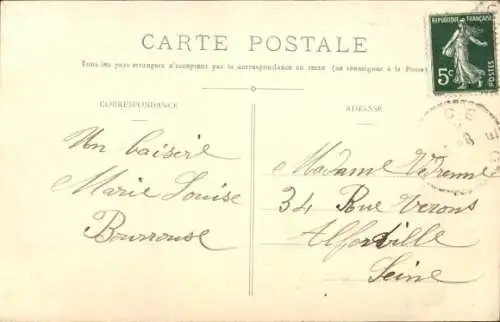 CARTE POSTALE
Tous les pays étrangers n'acceptent pas la correspondance au recto (se renseigner à la Poste)
CORRESPONDANCE
ADRESSE
RÉPUBLIQUE FRANÇAISE
5c
POSTES
Un baiser
Marie Louise
Bourrouse
Madame Vedrenne
34 Rue Verons
Alfortville
Seine